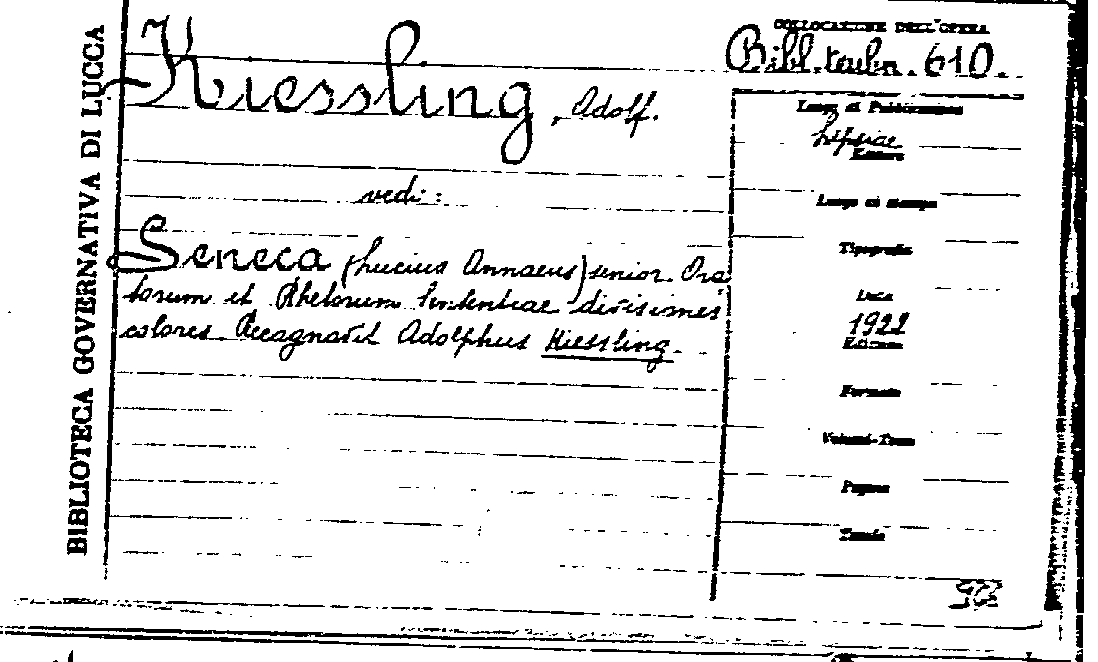 BIBLIOTECA GOVERNATIVA DI LUCCA
COLLOCAZIONE DELL'OPERA
Bibl. teubn. 610.
Kiessling, Adolf.
vedi:
Seneca (Lucius Annaeus) senior. Ora
torum et Rhetorum Sententiae divisiones
colores Recognovit Adolphus Kiessling.
Luogo di Pubblicazione
Lipsiae
Editore
Luogo di stampa
Tipografia
Data
1922
Edizione
Formato
Volumi-Tomi
Pagine
Tavole